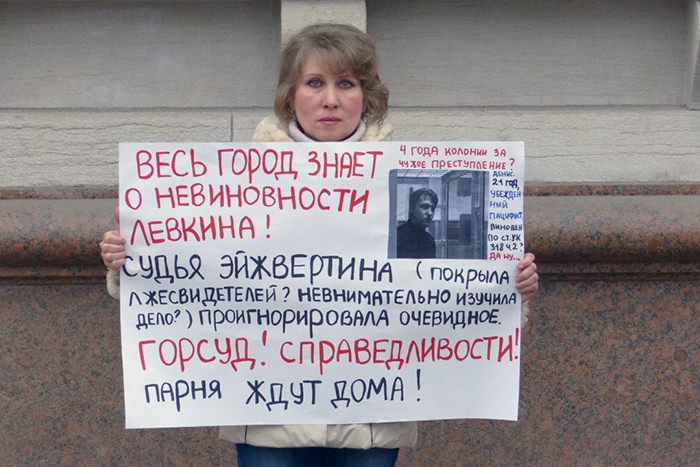 ВЕСЬ ГОРОД ЗНАЕТ
О НЕВИНОВНОСТИ
ЛЕВКИНА!
4 ГОДА КОЛОНИИ ЗА
ЧУЖОЕ ПРЕСТУПЛЕНИЕ?
ДЕНИС.
21 ГОД,
УБЕЖДЕН-
НЫЙ
ПАЦИФИСТ
ВИНОВЕН
ПО СТ. УК
318 Ч.2?
ДА НУ...
СУДЬЯ ЭЙЖВЕРТИНА (ПОКРЫЛА
ЛЖЕСВИДЕТЕЛЕЙ? НЕВНИМАТЕЛЬНО ИЗУЧИЛА
ДЕЛО?) ПРОИГНОРИРОВАЛА ОЧЕВИДНОЕ.
ГОРСУД! СПРАВЕДЛИВОСТИ!
ПАРНЯ ЖДУТ ДОМА!